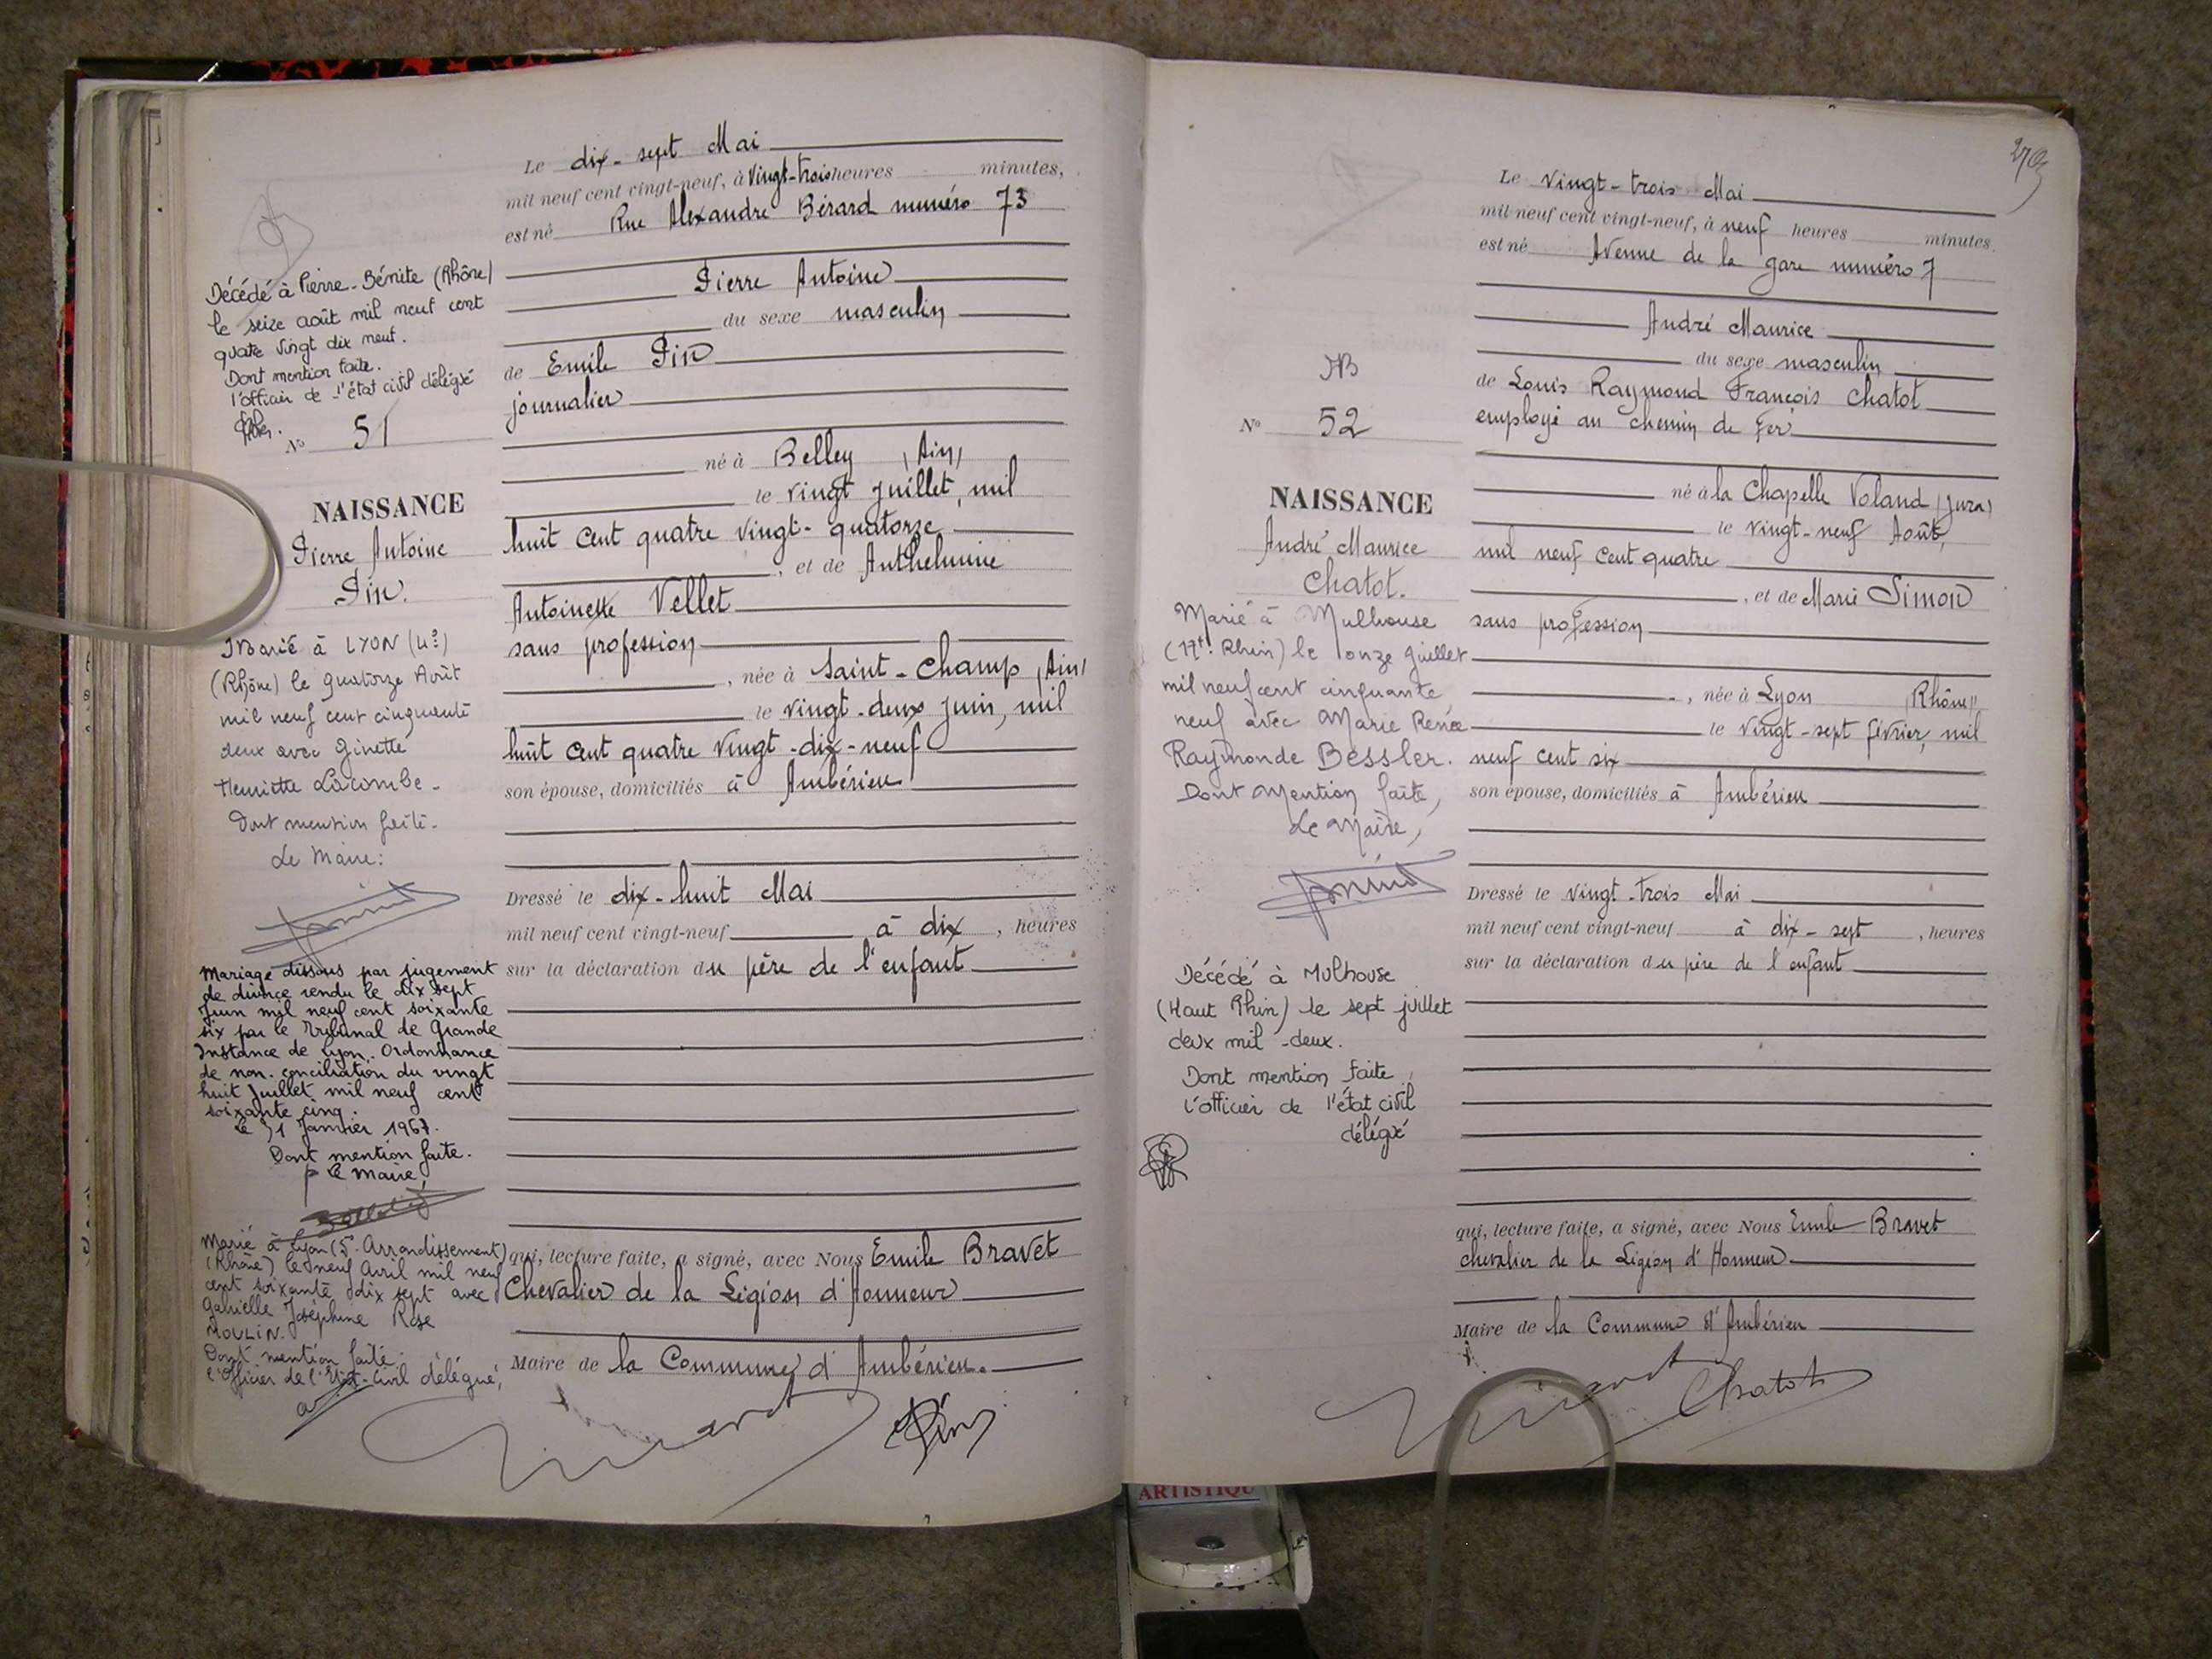 Décédé à Pierre-Bénite (Rhône)
le seize août mil neuf cent
quatre vingt dix neuf.
Dont mention faite.
l'officier de l'état civil délégué
No 51
NAISSANCE
Pierre Antoine
Pin.
Marié à LYON (4e)
(Rhône) le quatorze Août
mil neuf cent cinquante
deux avec Ginette
Henriette Lacombe.
Dont mention faite.
Le Maire:
Mariage dissous par jugement
de divorce rendu le dix sept
Juin mil neuf cent soixante
six par le Tribunal de Grande
Instance de Lyon. Ordonnance
de non-conciliation du vingt
huit Juillet mil neuf cent
soixante cinq.
Le 31 Janvier 1967.
Dont mention faite.
p Le Maire,
Marié à Lyon (5e Arrondissement)
(Rhône) le neuf Avril mil neuf
cent soixante dix sept avec
Gabrielle Joséphine Rose
MOULIN.
Dont mention faite.
l'Officier de l'Etat-Civil délégué,
Le dix-sept Mai
mil neuf cent vingt-neuf, à Vingt-trois heures minutes,
est né Rue Alexandre Bérard numéro 73
Pierre Antoine
du sexe masculin
de Emile Pin
journalier
né à Belley (Ain)
le vingt juillet, mil
huit cent quatre vingt-quatorze
, et de Anthelmine
Antoinette Vellet
sans profession
, née à Saint-Champ (Ain)
le vingt-deux juin, mil
huit cent quatre vingt-dix-neuf
son épouse, domiciliés à Ambérieu
Dressé le dix-huit Mai
mil neuf cent vingt-neuf à dix , heures
sur la déclaration du père de l'enfant
qui, lecture faite, a signé, avec Nous Emile Bravet
Chevalier de la Légion d'Honneur
Maire de la Commune d'Ambérieu.
Pin
No 52
NAISSANCE
André Maurice
Chatot.
Marié à Mulhouse
(Ht. Rhin) le onze Juillet
mil neuf cent cinquante
neuf avec Marie Renée
Raymonde Bessler.
Dont Mention faite,
Le Maire,
Décédé à Mulhouse
(Haut Rhin) le sept juillet
deux mil-deux.
Dont mention faite
l'officier de l'état civil
délégué
Le vingt-trois Mai
mil neuf cent vingt-neuf, à neuf heures minutes.
est né Avenue de la gare numéro 7
André Maurice
du sexe masculin
de Louis Raymond François Chatot
employé au chemin de fer
né à la Chapelle Voland (Jura)
le vingt-neuf Août,
mil neuf cent quatre
, et de Marie Simon
sans profession
, née à Lyon (Rhône),
le vingt-sept février, mil
neuf cent six
son épouse, domiciliés à Ambérieu
Dressé le vingt-trois Mai
mil neuf cent vingt-neuf à dix-sept , heures
sur la déclaration du père de l'enfant
qui, lecture faite, a signé, avec Nous Emile Bravet
chevalier de la Légion d'Honneur
Maire de la Commune d'Ambérieu
Chatot
ARTISTIQU